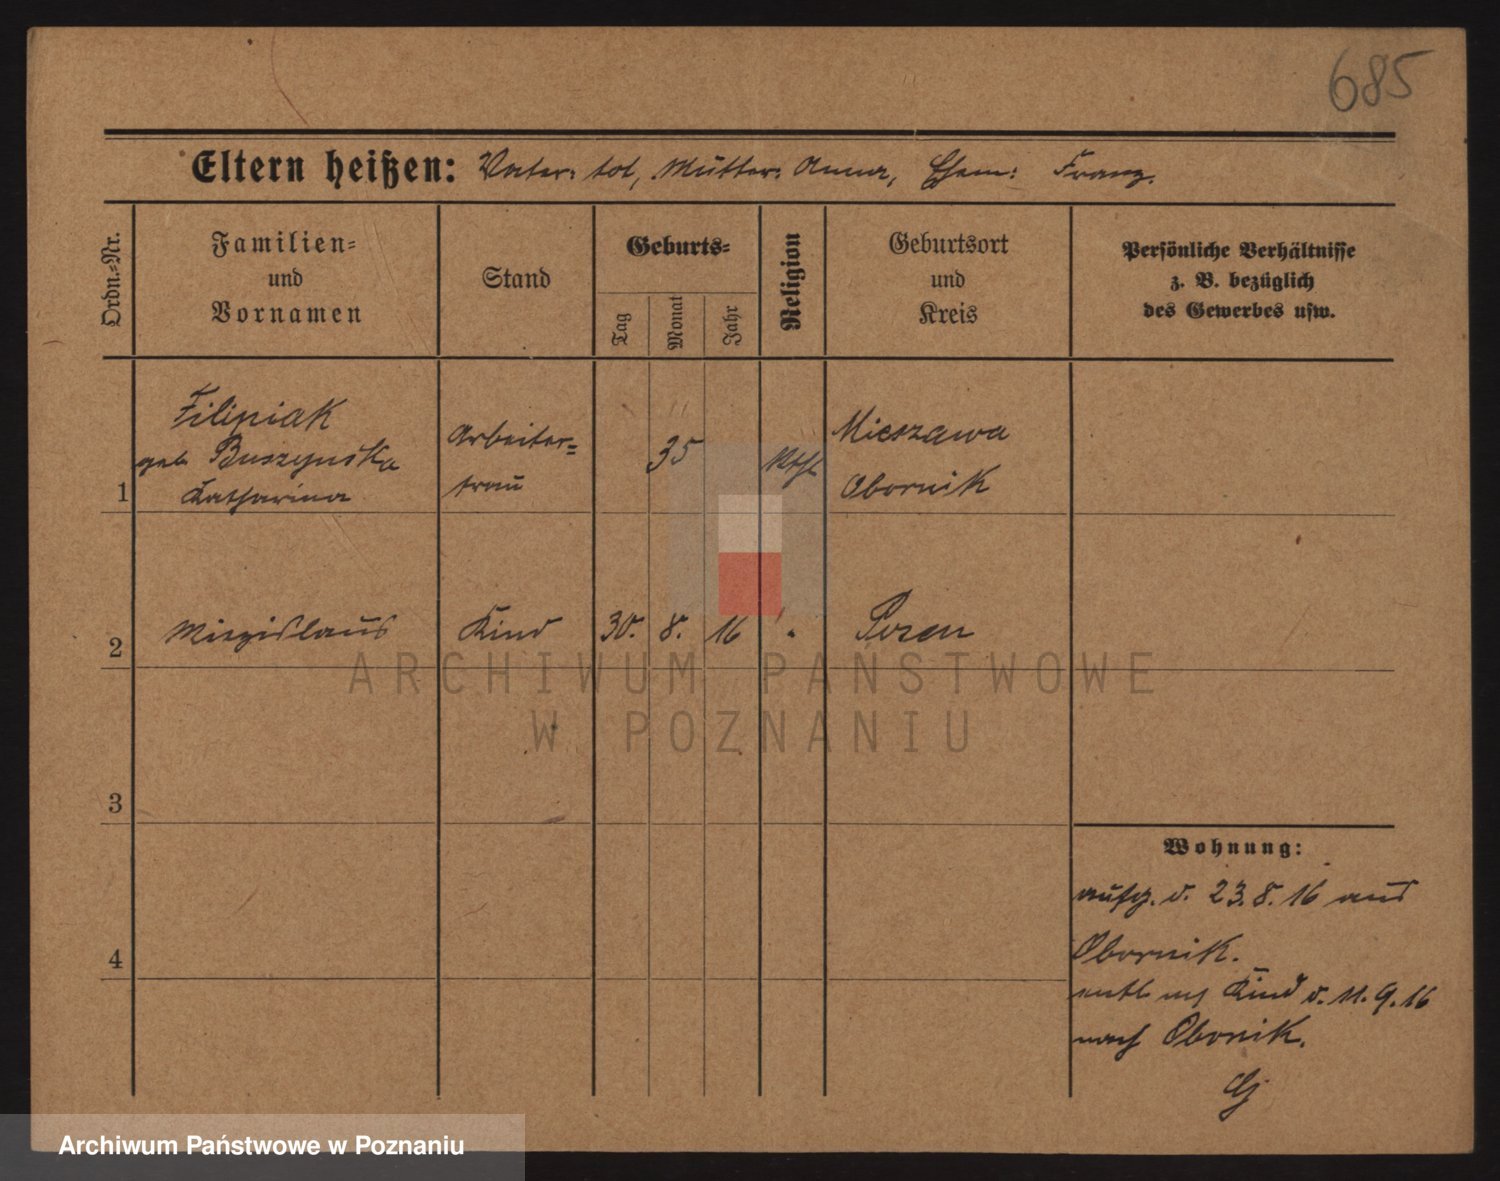 685
Eltern heißen: Vater: tot, Mutter: Anna, Ehem: Franz.
Ordn.-Nr.
Familien-
und
Vornamen
Stand
Geburts-
Tag
Monat
Jahr
Religion
Geburtsort
und
Kreis
Persönliche Verhältnisse
z. B. bezüglich
des Gewerbes usw.
1
Filipiak
geb Buszynska
Katharina
Arbeiter-
frau
35
Kthl
Mieszawa
Obornik
2
Miezislaus
Kind
30.
8.
16
"
Posen
3
4
Wohnung:
aufg. d. 23.8.16 aus
Obornik.
entl mf Kind d. 11.9.16
nach Obonik.
ARCHIWUM PAŃSTWOWE
W POZNANIU
Archiwum Państwowe w Poznaniu